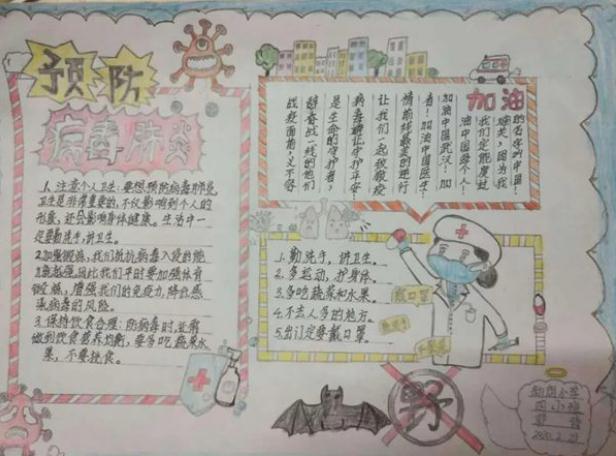 预防
病毒肺炎
1、注意个人卫生:要想预防病毒肺炎
卫生是非常重要的,不仅影响到个人的
形象,还会影响身体健康。生活中一
定要勤洗手,讲卫生。
2、加强锻炼,我们抵抗病毒入侵的能
因此我们平时要加强体育
锻炼,增强我们的免疫力,降低感
染病毒的风险。
3、保持饮食合理:防病毒时,正常
做到饮食营养均衡,要多吃蔬菜水
果,不要挑食。
加油
的名字叫中国!
难关,因为我
我们定能度过
油中国每个人!
加油中国武汉!加
者!加油中国医生!
情前线最美的逆行
让我们一起致敬疫
病毒让守护平安!
是生命的守护者,
奋战一线的他们
战疫面前,义不容
1、勤洗手,讲卫生。
2、多运动,护身体。
3、多吃蔬菜和水果。
4、不去人多的地方。
5、出门定要戴口罩。
戴口罩
野
小学
2020.2.